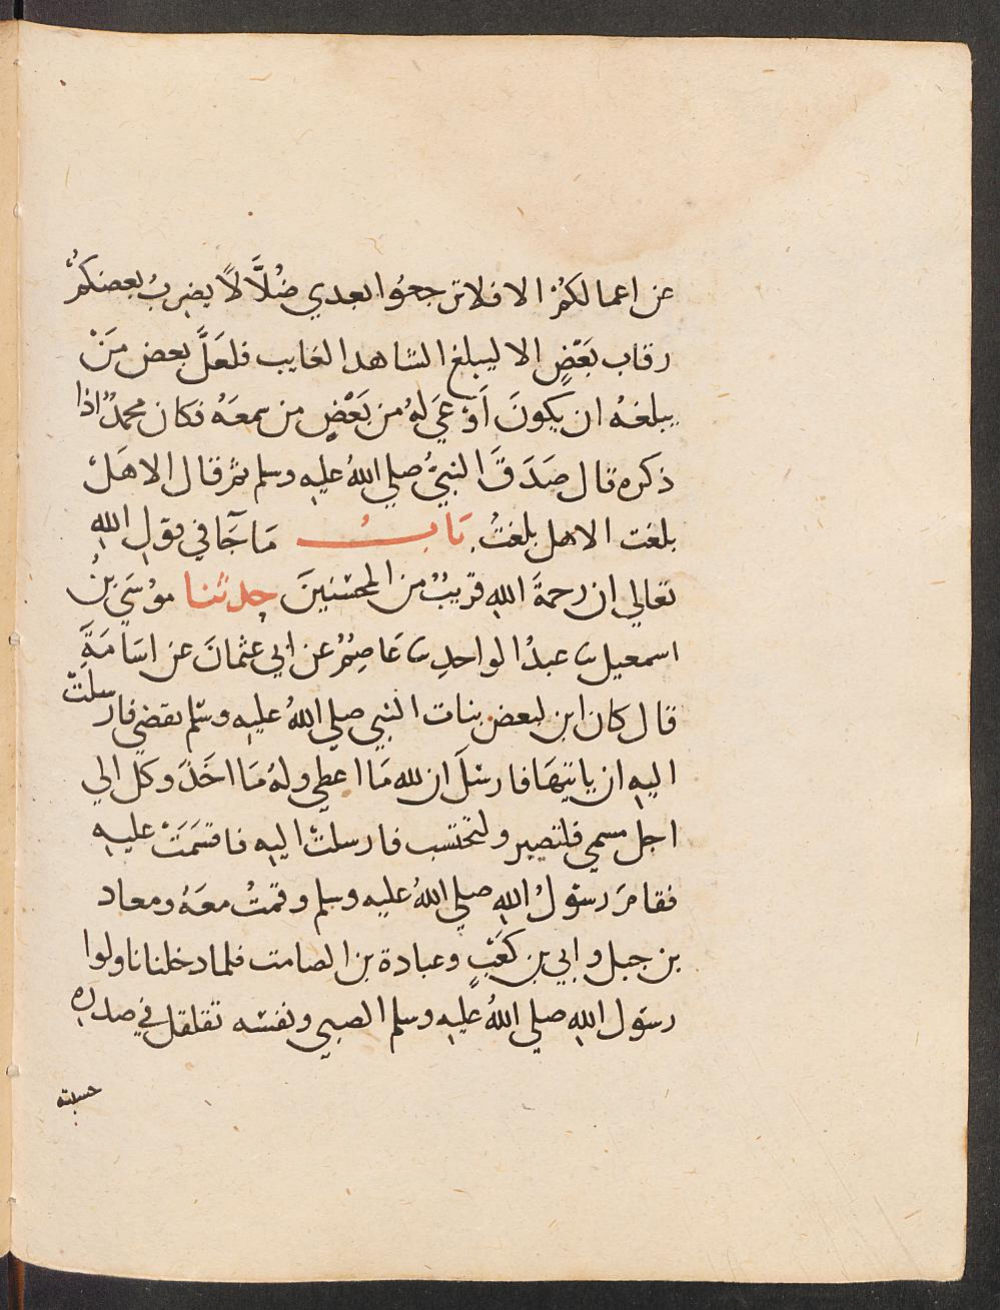 عن اعمالكُمْ الا فلا ترجعوُا بعدي ضُلَّالًا يضربُ بعضكمُ
رقاب بَعْضٍ الا ليبلغ الشاهد الغايب فلعَلَّ بعض مَنْ
يبلغهُ ان يكونَ اَوْعَي لهُ من بَعْضٍ من سمعَهُ فكان محمدٌ اذا
ذكره قال صَدَقَ النبيُّ صلي اللهُ عليه وسلم ثم قال الا هَلْ
بلغت الا هل بلغتُ. بَابُ مَا جَآ في قول اللهِ
تعالي ان رحمةَ اللهِ قريبٌ من المحسنينَ حدثنا موُسَي بنُ
اسمعيل ثنا عبدُ الواحدِ ثنا عَاصِمٌ عن ابي عثمانَ عن اسَامَةَ
قال كان ابن لبعض بنات النبي صلي اللهُ عليه وسلم يقضي فارسلتْ
اليه ان ياتيهَا فارسَلَ ان لله مَا اعطي ولهُ مَا اخَذَ وكل الي
اجل مسمي فلتصبر ولتحتسب فارسلتْ اليه فاقسَمَتْ عليه
فقامَ رسوُلُ اللهِ صلي اللهُ عليه وسلم وقمتُ معَهُ ومعاد
بن جبل وابي بن كعْبٍ وعبادة بن الصامت فلما دخلنا ناولوا
رسوُل الله صلي اللهُ عليه وسلم الصبي ونفسه تقلقل في صدره
حسبته